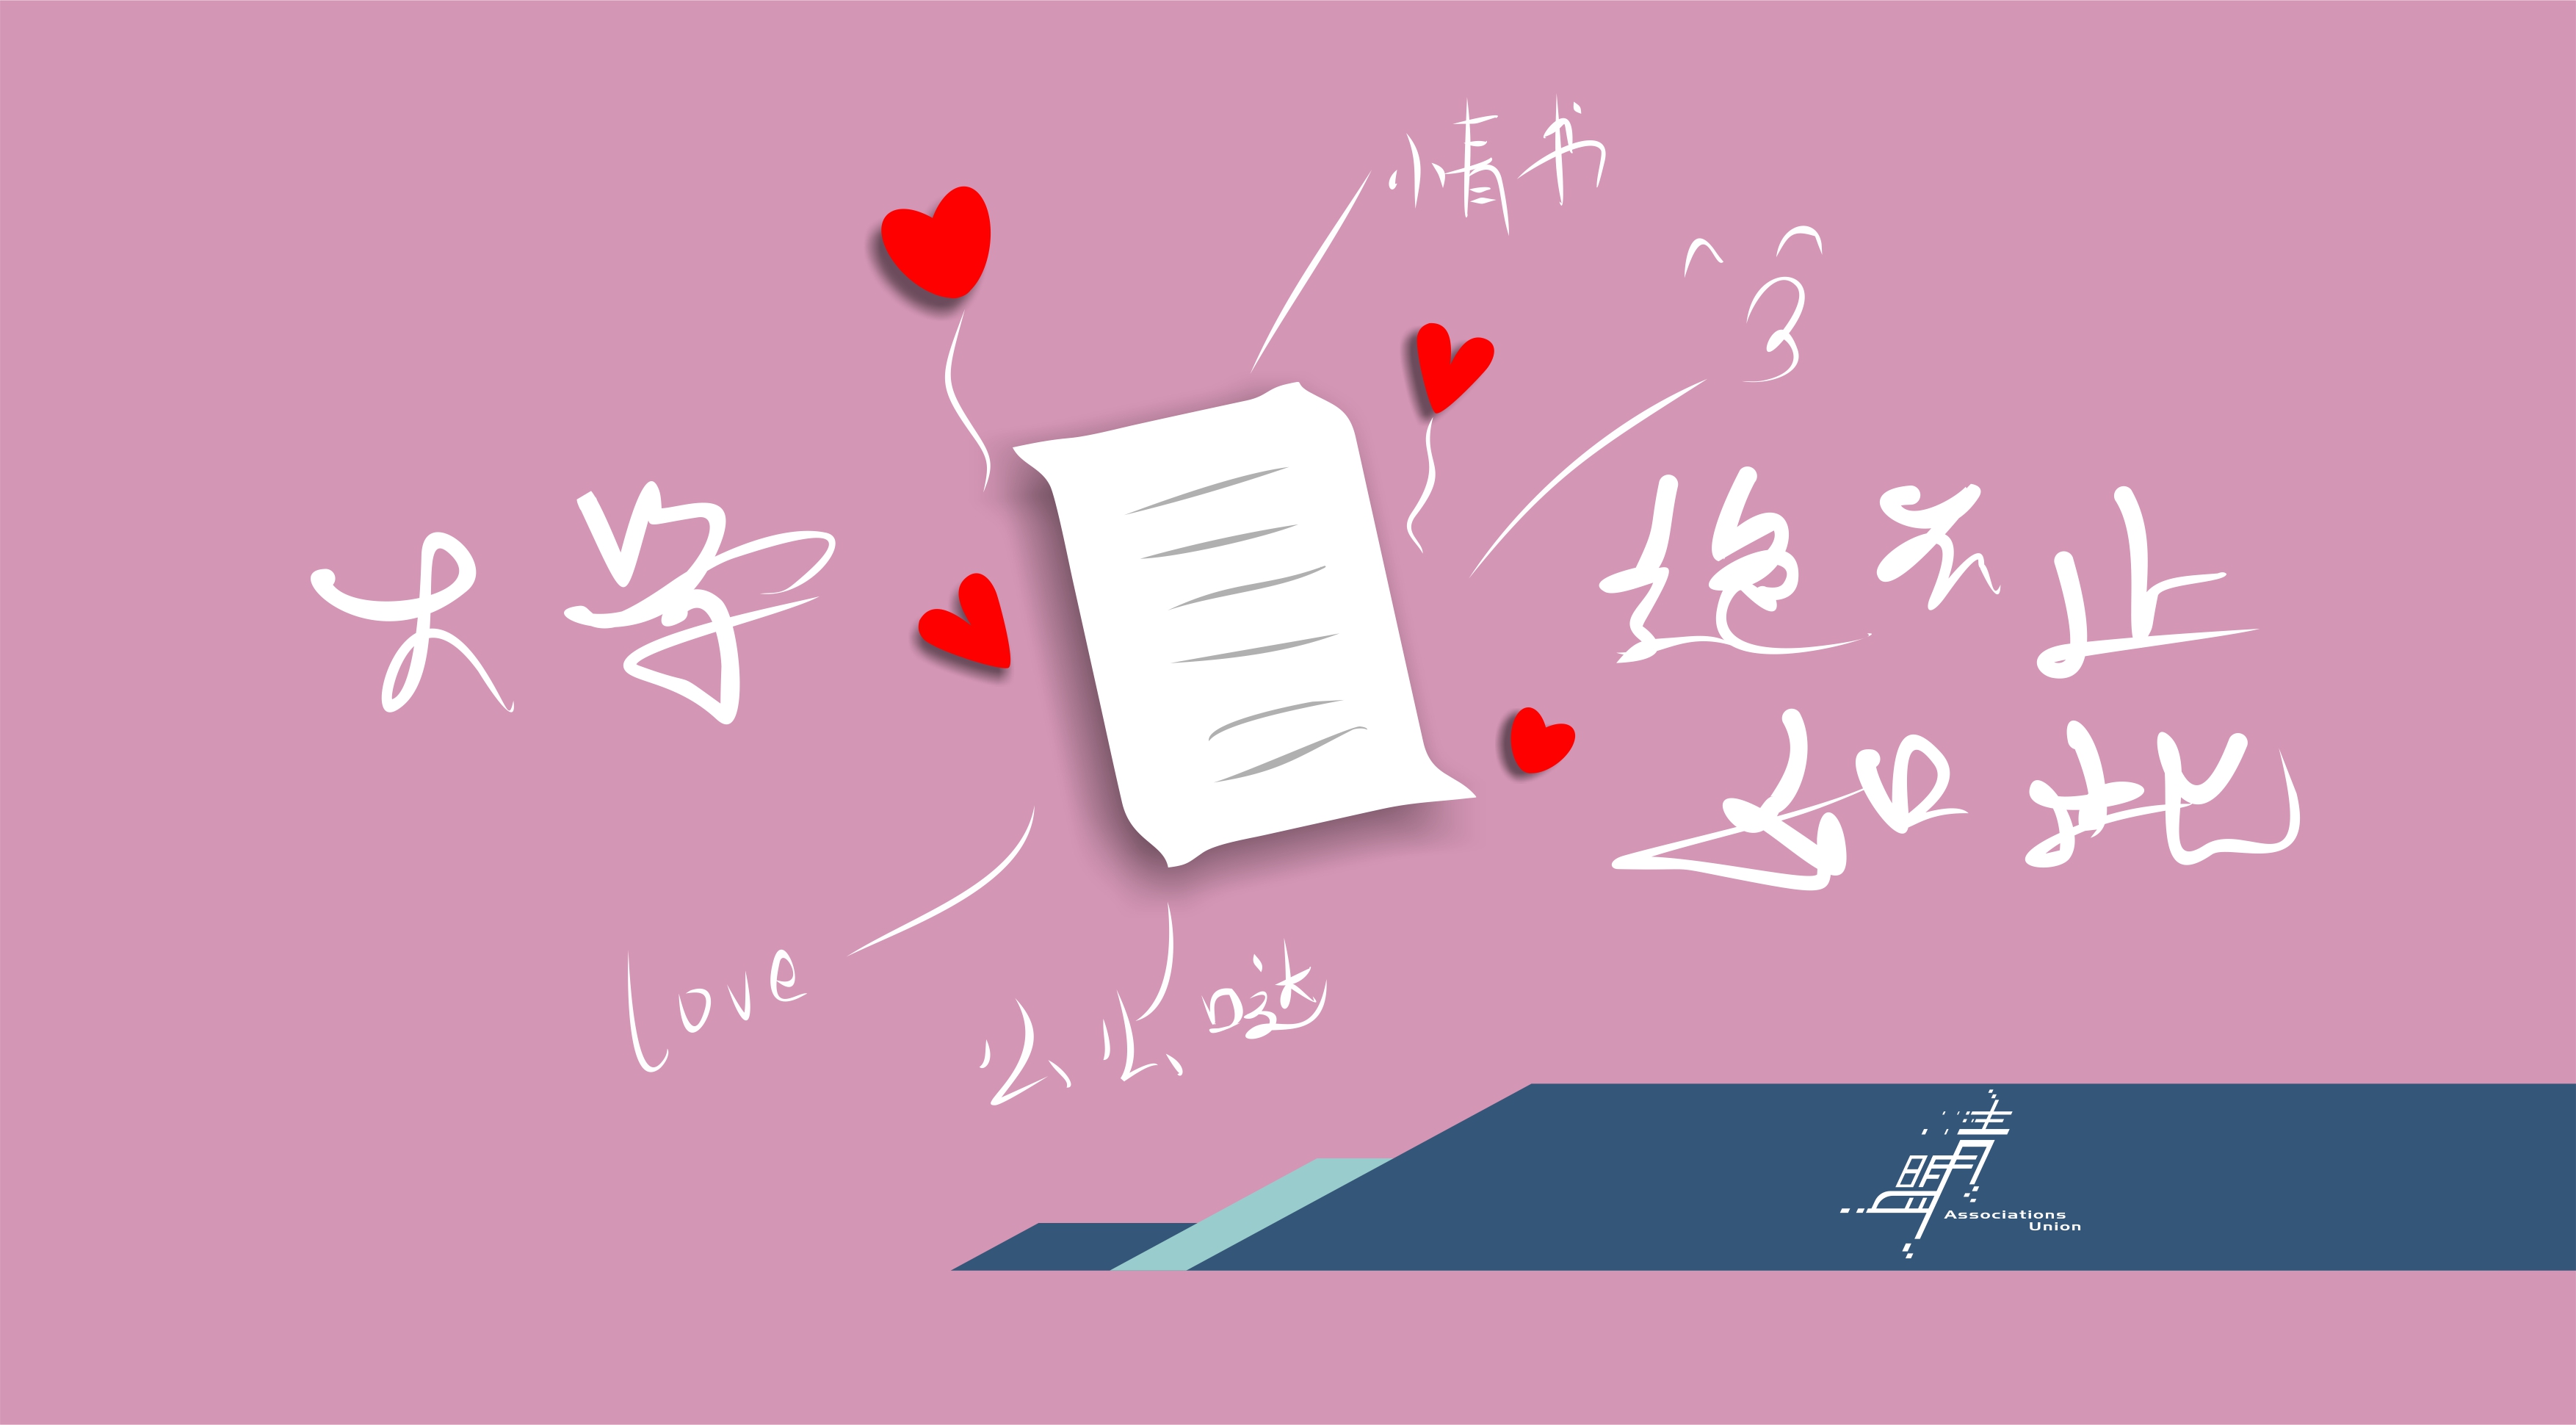 情书
^ ^
3
大学
绝不止
如此
love
么么哒
青明
Associations
Union